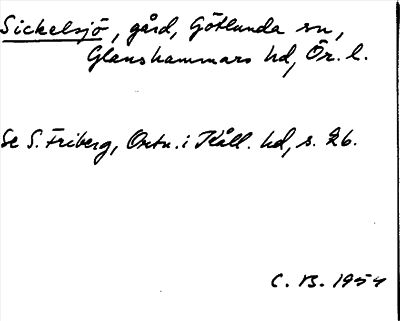 Sickelsjö, gård, Götlunda sn,
Glanshammars hd, Ör. l.
Se S. Friberg, Ortn. i Kåll. hd, s. 26.
C. B. 1954